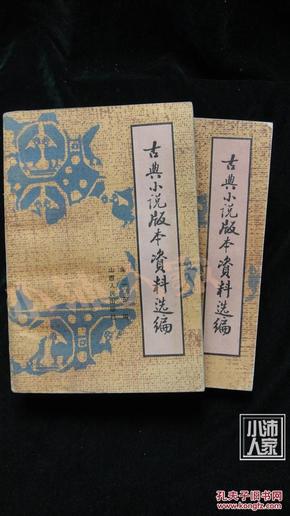 古典小说版本資料选编
山西人
古典小说版本資料选编
小沛
人家
孔夫子旧书网